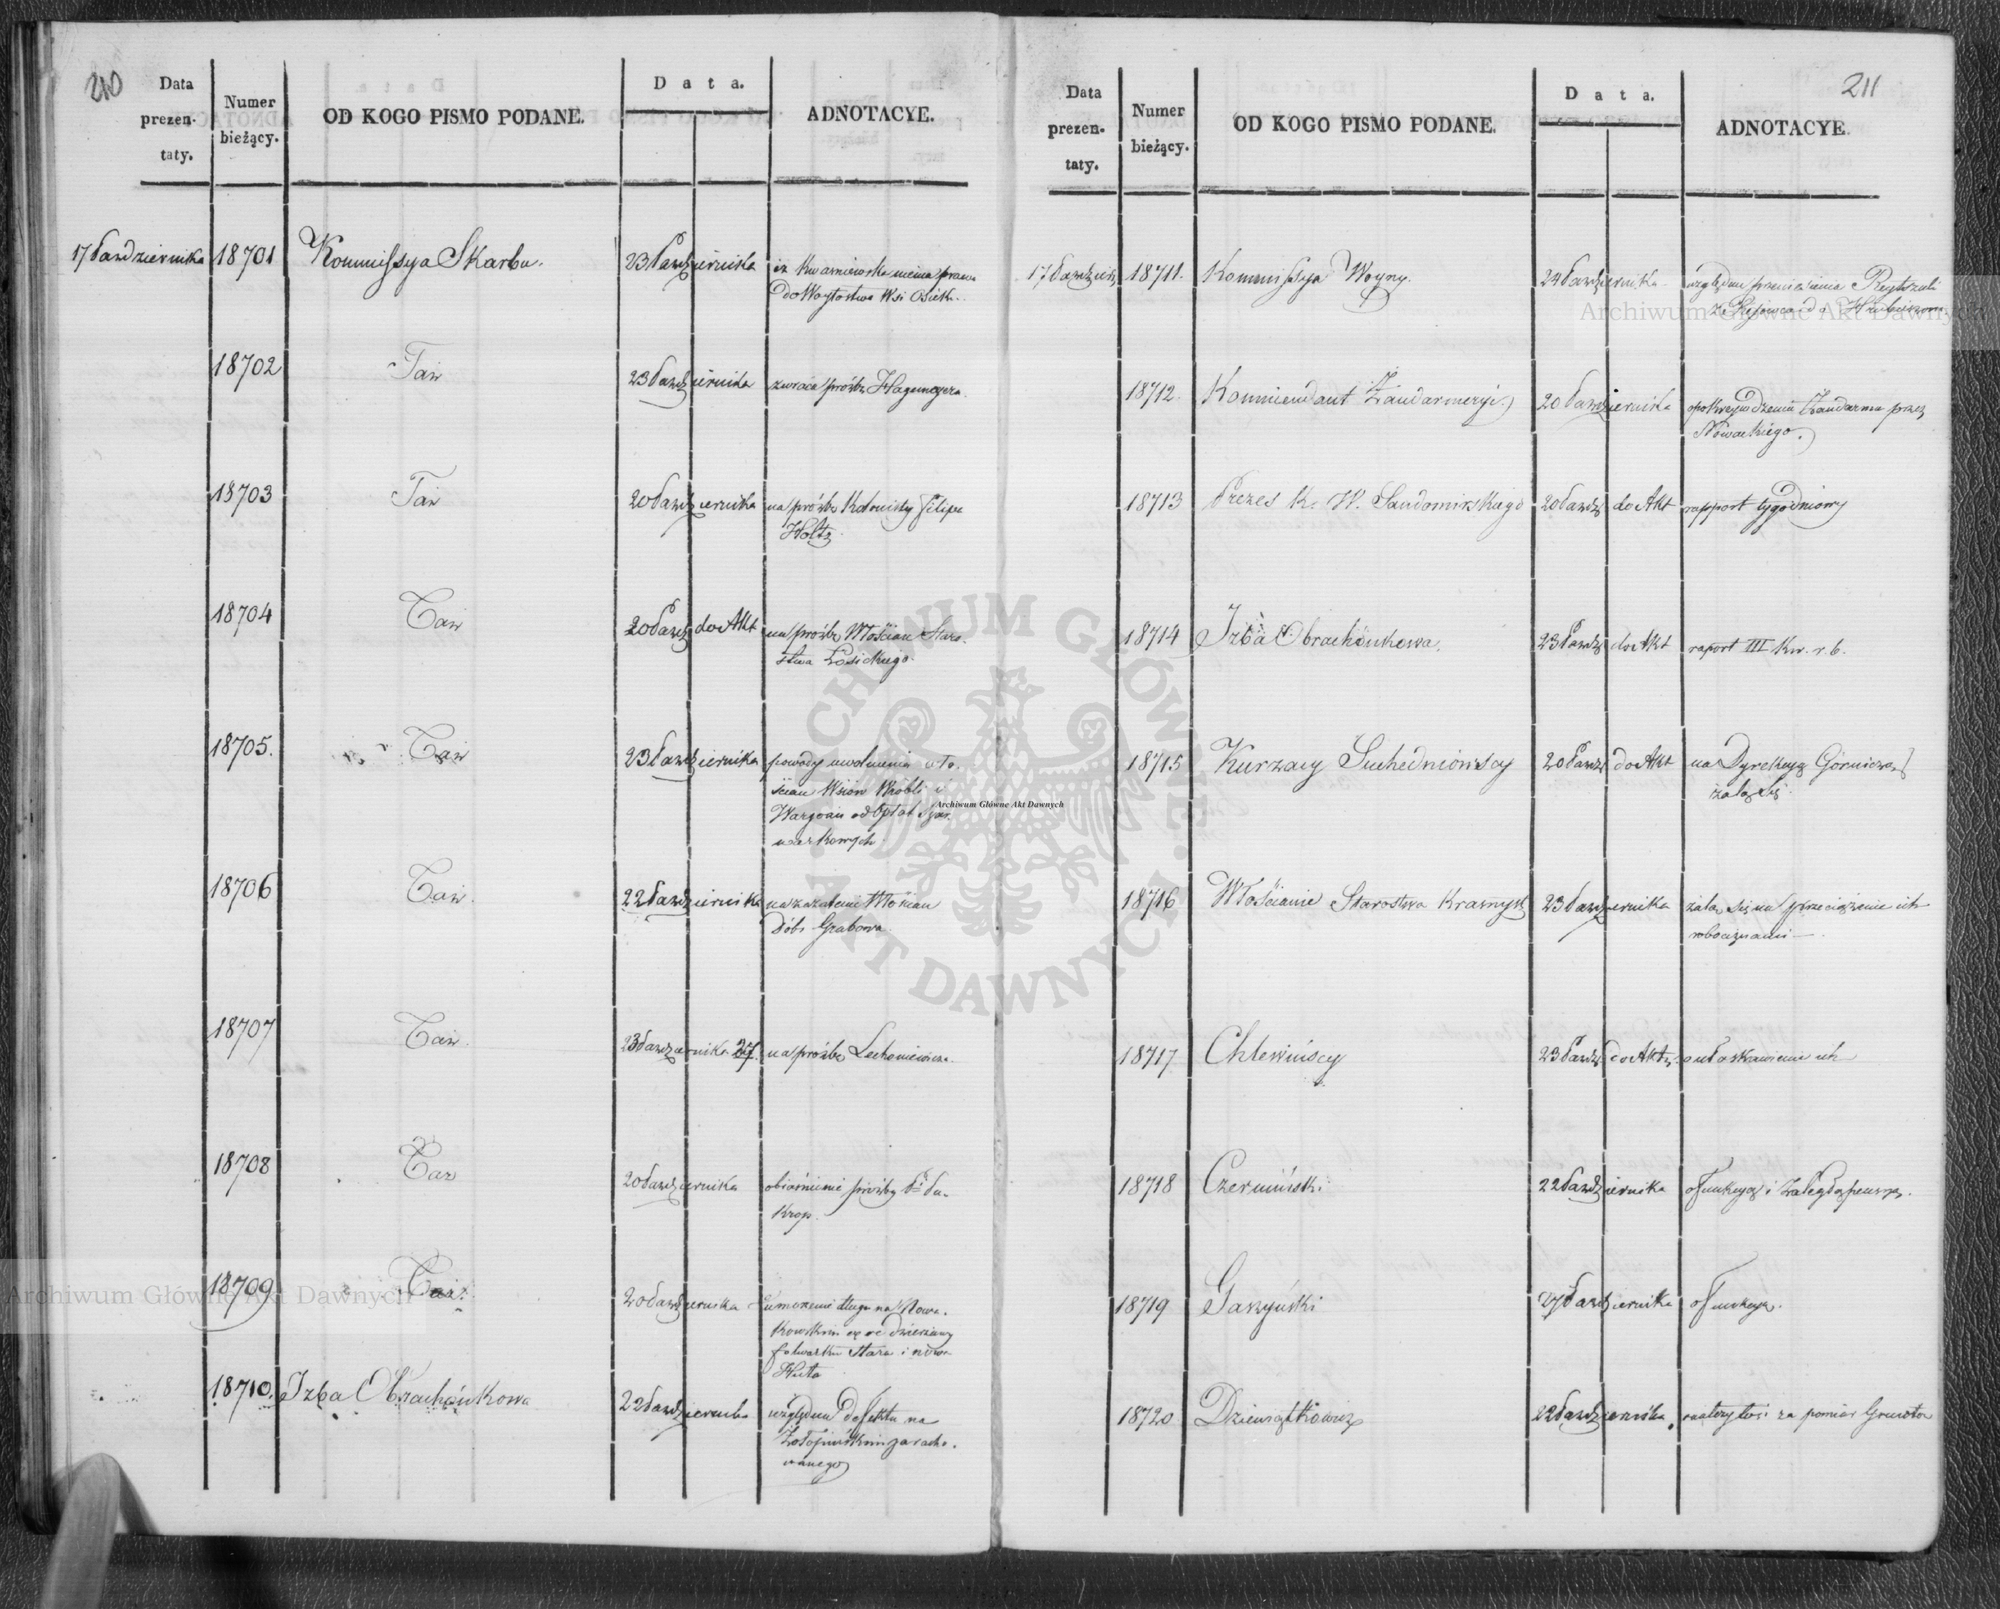 210
Data prezen-taty.
Numer bieżący.
OD KOGO PISMO PODANE.
Data.
ADNOTACYE.
17 Października 18701 Kommissya Skarbu. 23 Października iż Kwarciewska niema prawa
do Woytostwa Wsi Osiek.
18702 Taż 23 Października zwraca prośbę Hagemejera.
18703 Taż 20 Października na prośbę Kolonisty Filipa
Holtz.
18704 Taż 20 Paźdz do Akt na prośbę Włościan Staro-
stwa Łosickiego.
18705. Taż 23 Października powody uwolnienia wło-
ścian Wsiów Wróbli i
Wargocin od Opłat Szar-
warkowych.
18706 Taż. 22 Października na zażalenie Włościan
Dóbr Grabowa.
18707 Taż. 23 Października 27. na prośbę
18708 Taż 20 Października obiaśnienie prośby
Krop.
18709 Taż. 20 Października umorzenie długu na Nowa-
kowskim z dzierżawy
folwarku Stara i nowa
Huta
18710. Izba Obrachunkowa 22 Października względem defektu na
zaracho-
wanego
211
Data prezen-taty.
Numer bieżący.
OD KOGO PISMO PODANE.
Data.
ADNOTACYE.
17 Paździer 18711. Kommissya Woyny. 24 Października względem przeniesienia
z Rejowca do Hrubieszowa.
18712. Kommendant Żandarmeryi. 20 Października o pokrzywdzenie Żandarma przez
Nowackiego.
18713 Prezes K. W. Sandomirskiego 20 Paźdz do Akt rapport tygodniowy
18714 Izba Obrachunkowa. 23 Paźdz do Akt raport III Kw. r. b.
18715 Kurzacy Suchedniowscy 20 Paźdz do Akt na Dyrekcyę Górniczą
żalą się.
18716 Włościanie Starostwa Krasnyst 23 Października żalą się na przeciążenie ich
robociznami
18717 Chlewińscy 23 Paźdz do Akt o ułaskawienie ich
18718 Czermiński 22 Października o funkcyę i zaległą pensyę.
18719 Gaszyński 27 Października o funkcyę.
18720 Dziewiątkiewicz 22 Października należytość za pomiar Gruntów
Archiwum Główne Akt Dawnych
Archiwum Główne Akt Dawnych
Archiwum Główne Akt Dawnych
ARCHIWUM GŁÓWNE AKT DAWNYCH